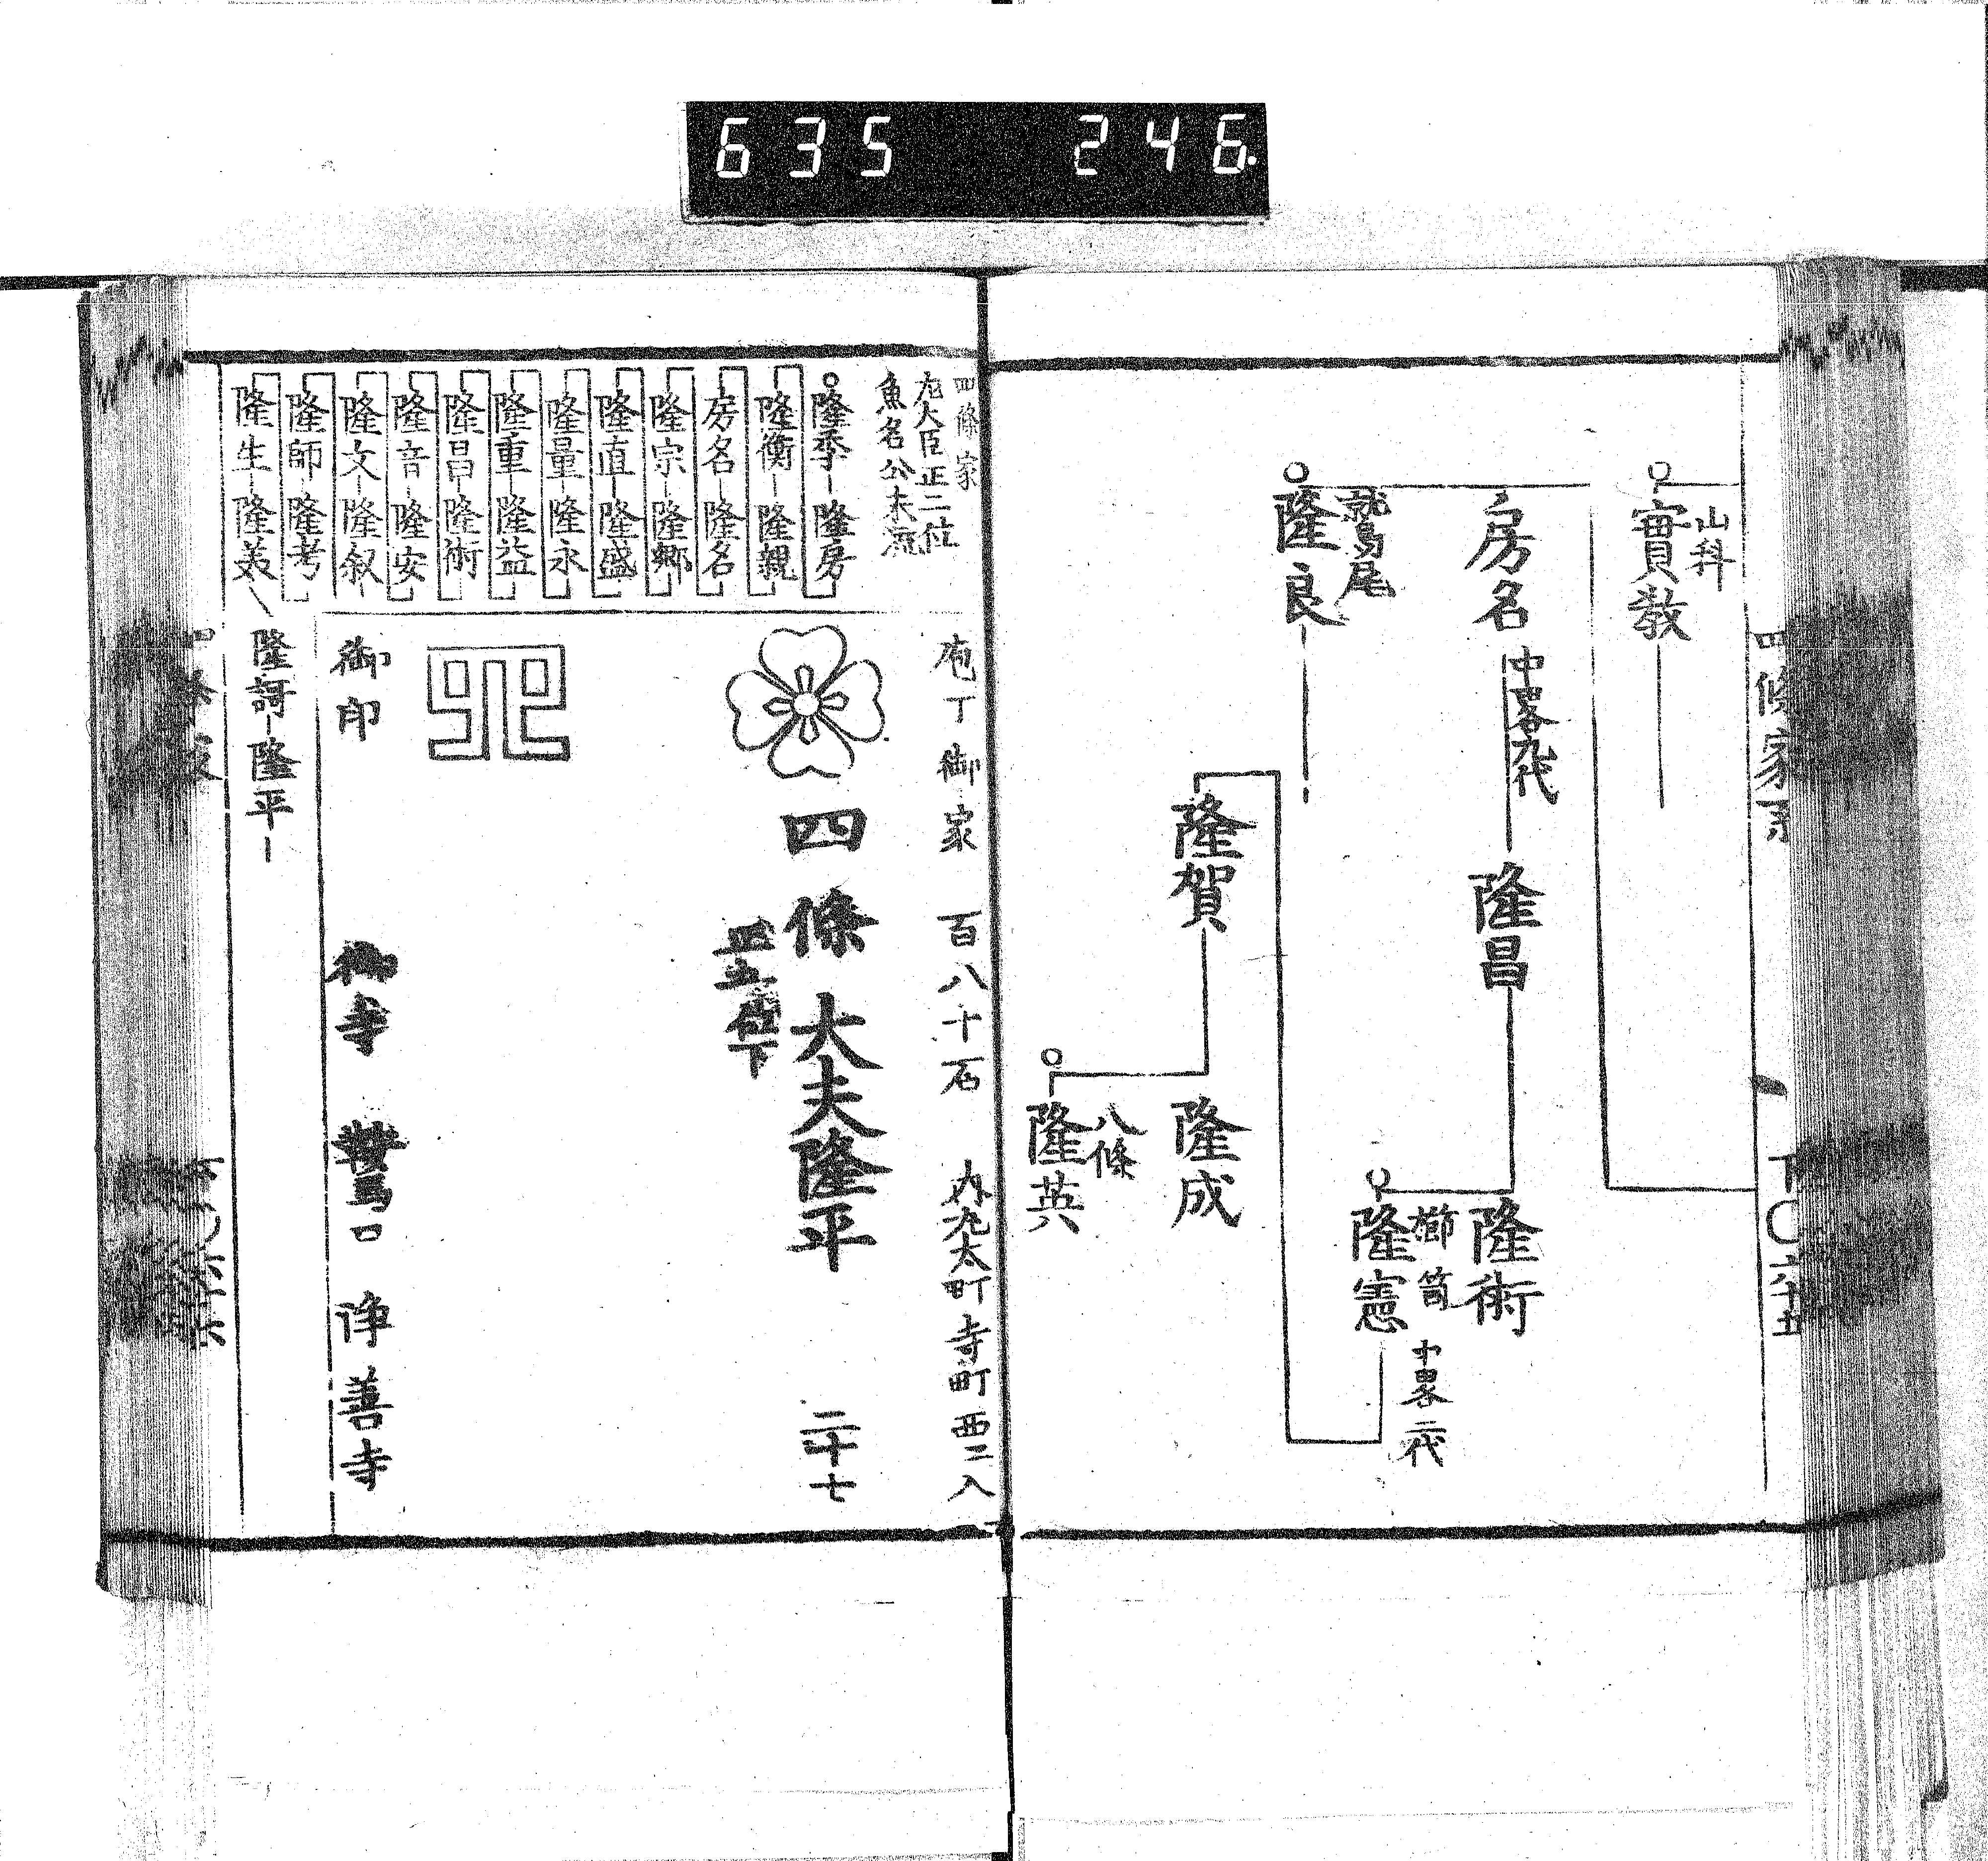 635 246
四條家系
下〇六十五
山科
實教
房名
中畧九代
隆昌
隆術
鷲尾
隆良
櫛笥
隆憲
中畧二代
隆賀
隆成
八條
隆英
四條家
左大臣正二位
魚名公末流
隆季 隆房
隆衡 隆親
房名 隆名
隆宗 隆郷
隆直 隆盛
隆量 隆永
隆重 隆益
隆昌 隆術
隆音 隆安
隆文 隆叙
隆師 隆考
隆生 隆美
隆謌 隆平
庖丁御家 百八十石 内丸太町寺町西ニ入
四條大夫隆平 二十七
正五位下
御印
御寺 鷲口 浄善寺